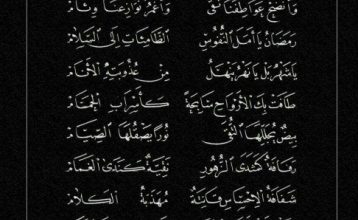 وانضح عواطفنا تقى واغمر نوازعنا وئام
رمضان يا أمل النفوس الظامئات إلى السلام
يا شهر بل يا نهر ينهل من عذوبته الأنام
طافت بك الأرواح سابحة كأسراب الحمام
بيض يجللها التقى نورا يصقلها الصيام
رفافة كشذى الزهور نقية كندى الغمام
شفافة الإحساس فاتنة مهذبة الكلام